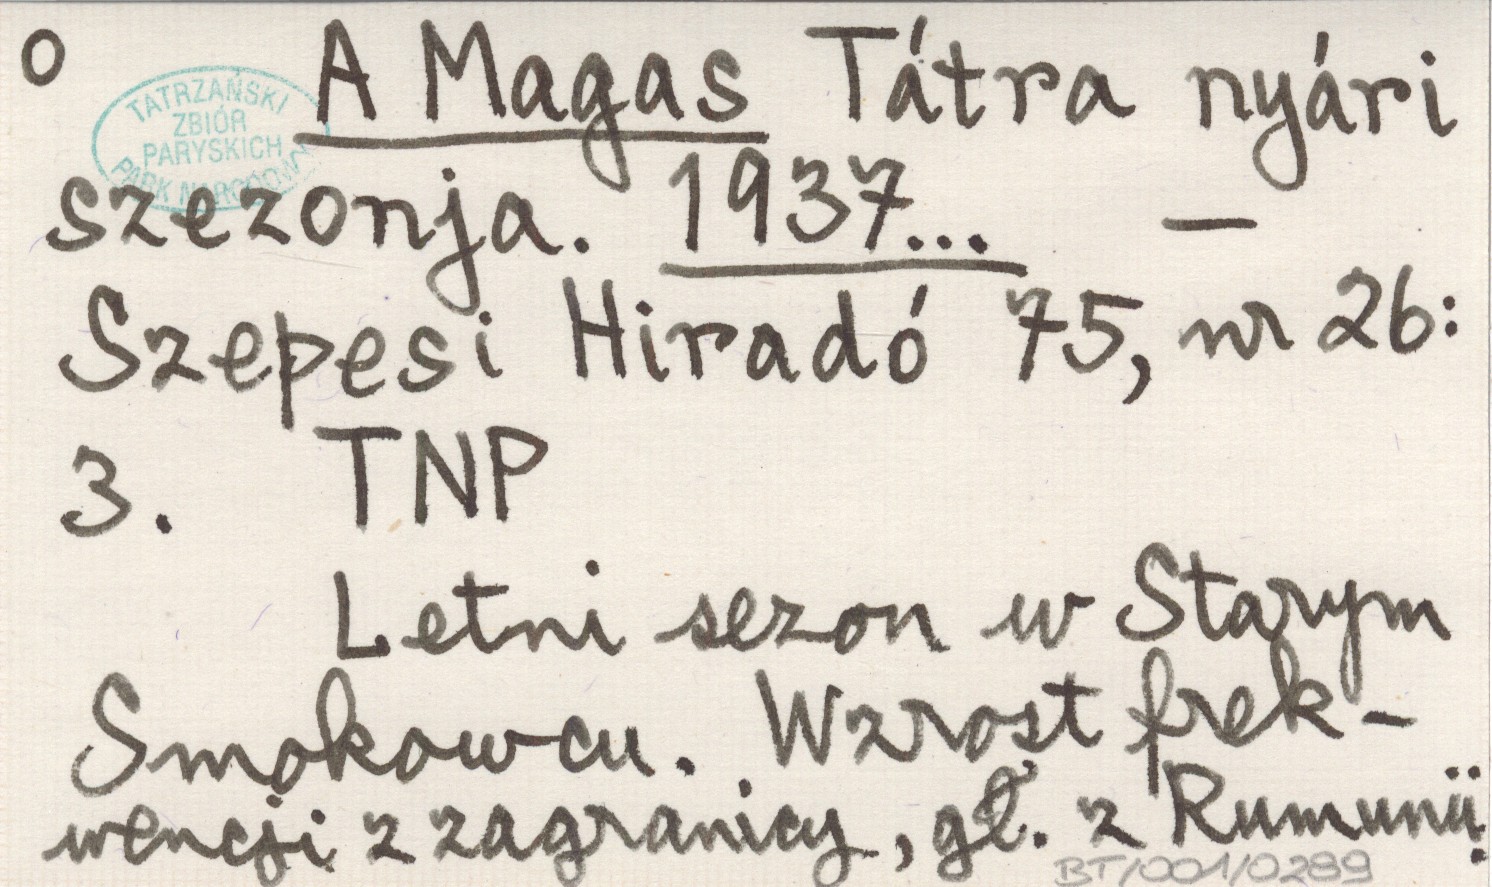 O A Magas Tátra nyári
TATRZAŃSKI
ZBIÓR
PARYSKICH
PARK NARODOWY
szezonja. 1937... —
Szepesi Hiradó 75, nr 26:
3. TNP
Letni sezon w Starym
Smokowcu. Wzrost frek-
wencji z zagranicy, gł. z Rumunii.
BT/001/0289